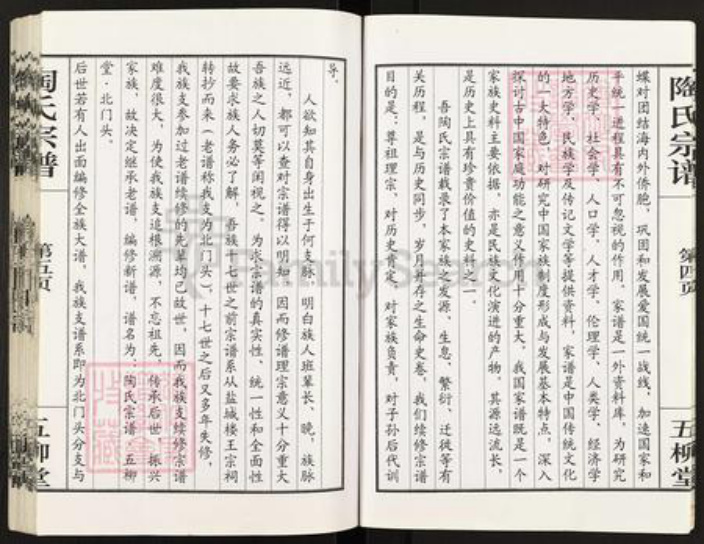 陶氏宗谱
第四页
五柳堂
蝶对团结海内外侨胞，巩固和发展爱国统一战线，加速国家和
平统一进程具有不可忽视的作用。家谱是一外资料库，为研究
历史学、社会学、人口学、人才学、伦理学、人类学、经济学
地方学、民族学及传记文学等提供资料，家谱是中国传统文化
的一大特色，对研究中国家族制度形成与发展基本特点，深入
探讨古中国家庭功能之意义作用十分重大。我国家谱既是一个
家族史料主要依据，亦是民族文化演进的产物，其源远流长，
是历史上具有珍贵价值的史料之一。
吾陶氏宗谱载录了本家族之发源、生息、繁衍、迁徙等有
关历程，是与历史同步，岁月并存之生命史卷，我们续修宗谱
目的是：尊祖理宗，对历史肯定，对家族负责，对子孙后代训
导。
人欲知其自身出生于何支脉，明白族人班辈长、晚，族脉
远近，都可以查对宗谱得以明知，因而修谱理宗意义十分重大
吾族之人切莫等闲视之。为求宗谱的真实性、统一性和全面性
故要求族人务必了解，吾族十七世之前宗谱系从盐城楼王宗祠
转抄而来（老谱称我支为北门头），十七世之后又多年失修，
我族支参加过老谱续修的先辈均已故世，因而我族支续修宗谱
难度很大，为使我族支追根溯源，不忘祖先，传承后世，振兴
家族，故决定继承老谱，编修新谱，谱名为：陶氏宗谱 五柳
堂·北门头。
后世若有人出面编修全族大谱，我族支谱系即为北门头分支与
陶氏宗谱
第五页
五柳堂
FamilySearch